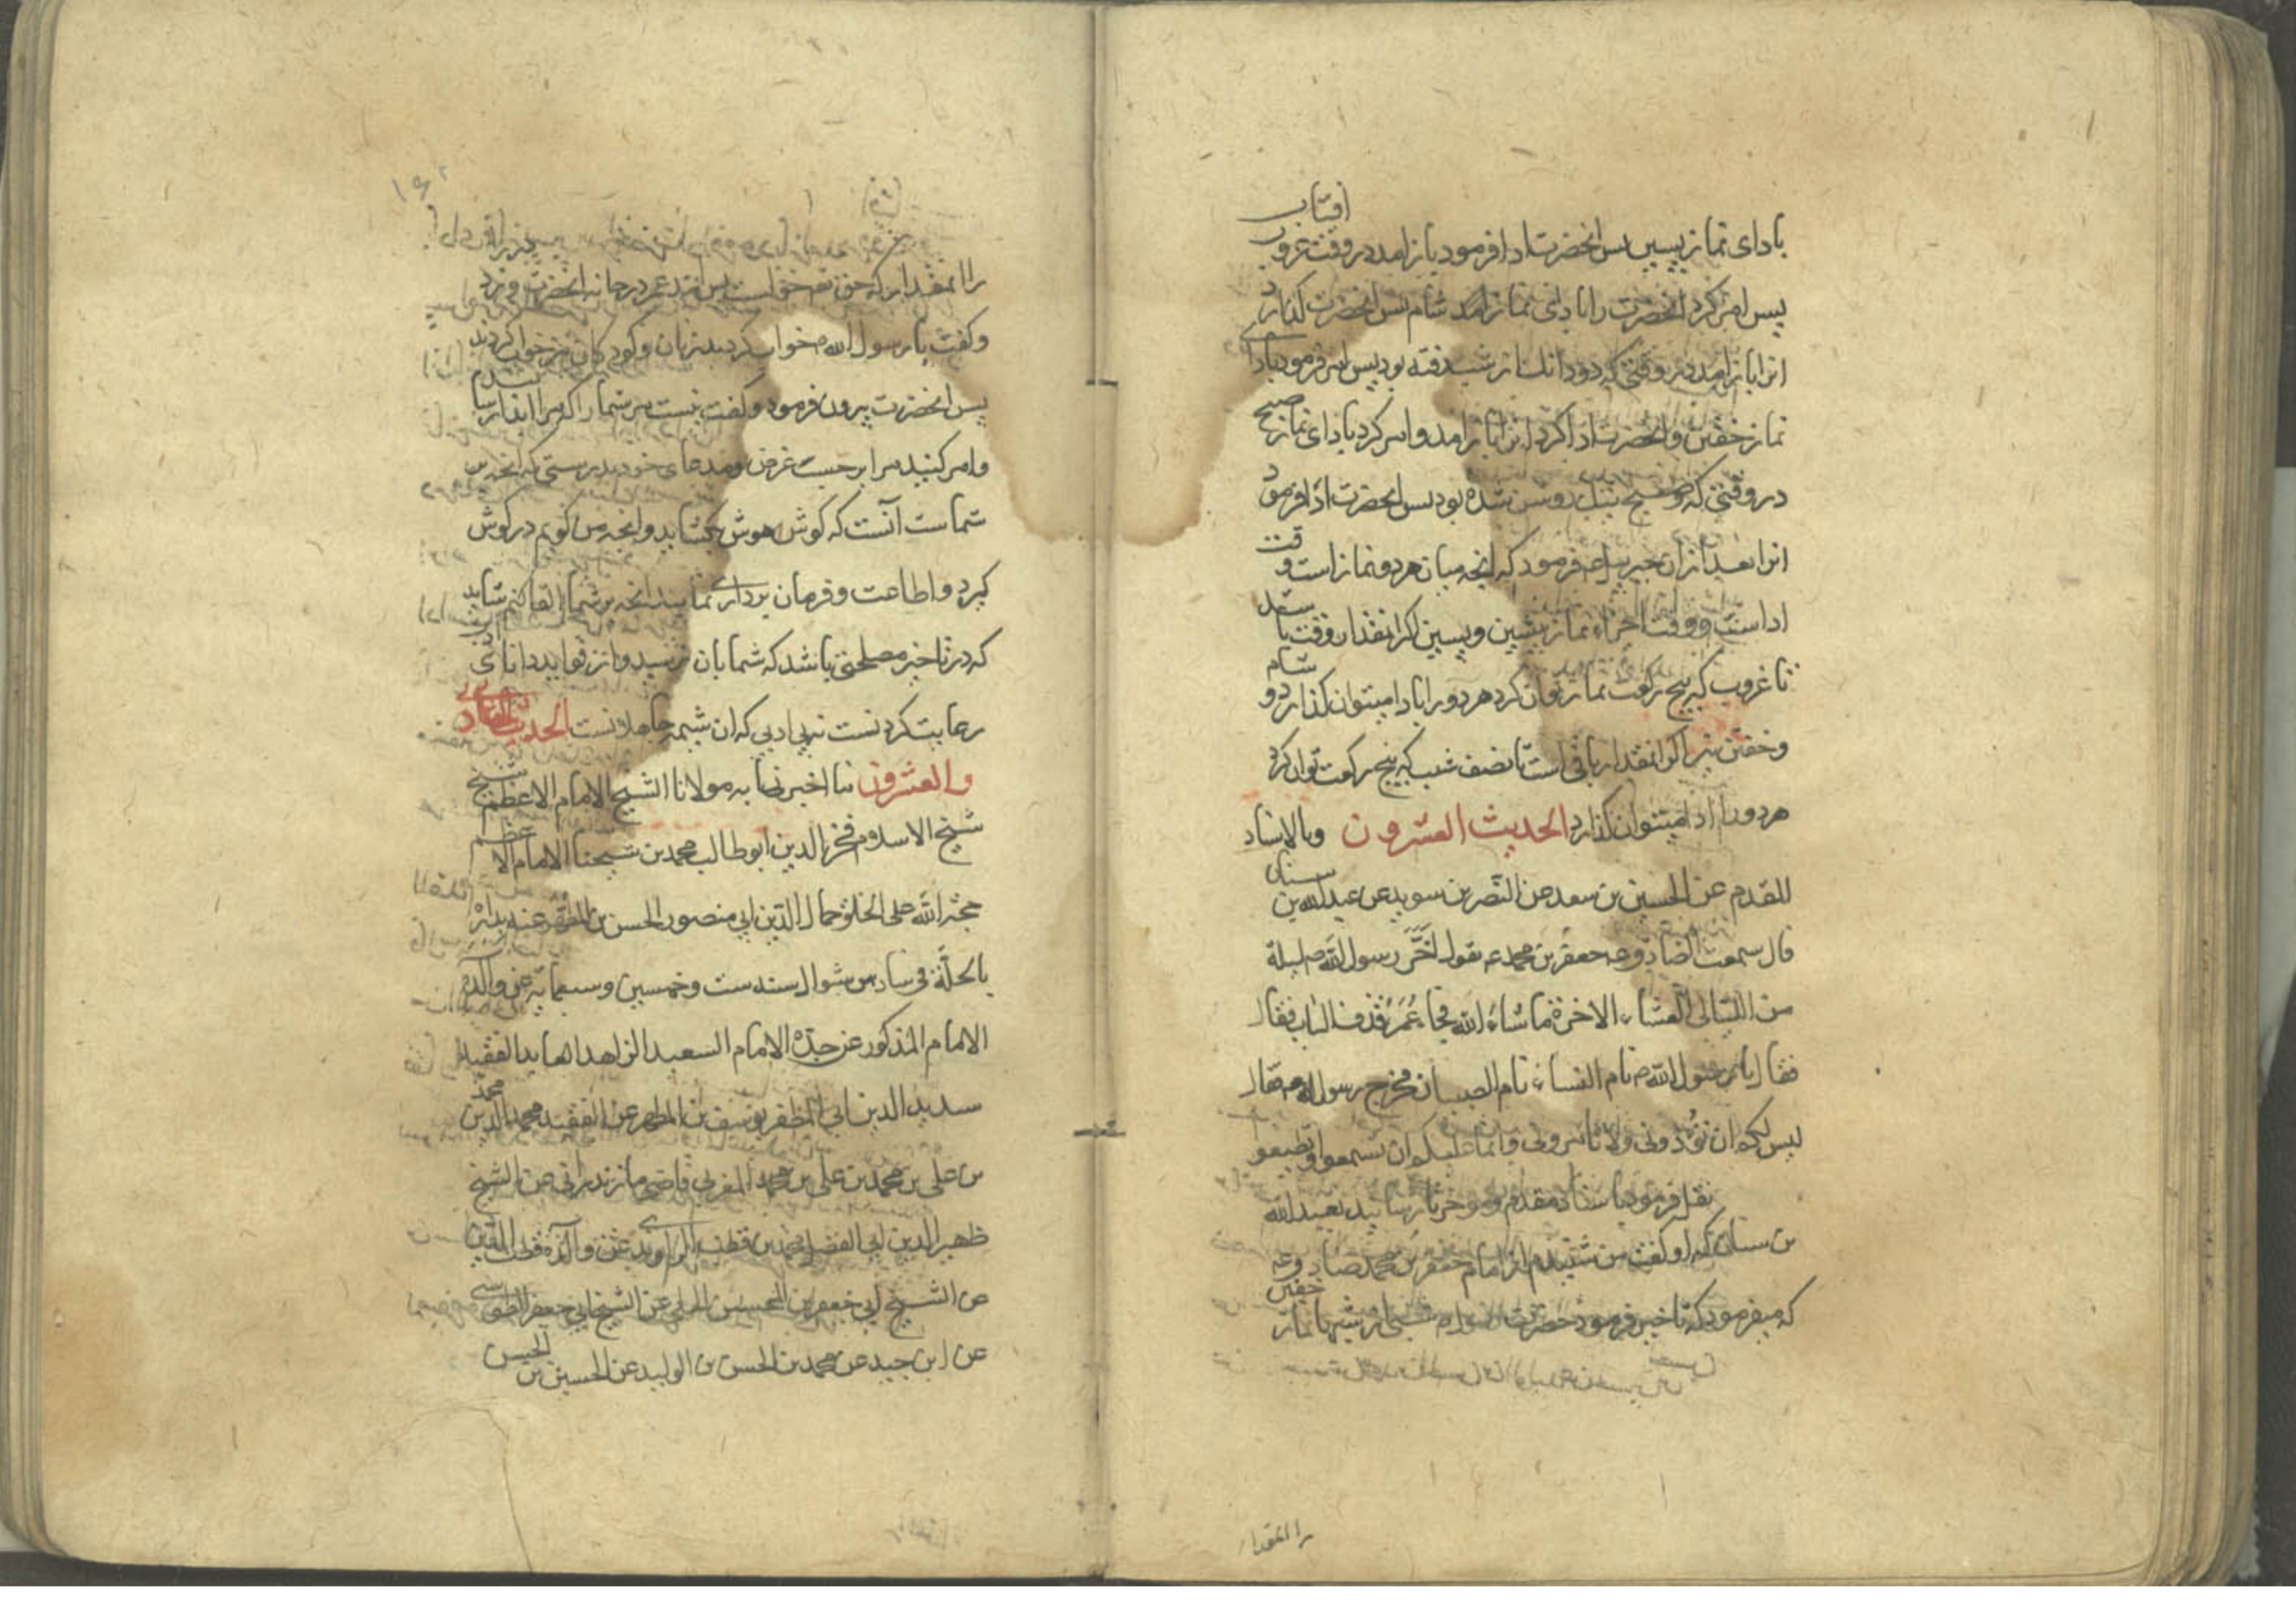 بادای نماز پسین پس انحضرت ادا فرمود باز امد در وقت غروب افتاب
پس امر کرد انحضرت را بادای نماز شام پس انحضرت گذارد
انرا باز امد در وقتی که دودانک از شب رفته بود پس امر فرمود بادای
نماز خفتن وانحضرت ادا کرد انرا باز امد وامر کرد بادای نماز صبح
در وقتی که صبح نیک روشن شده بود پس انحضرت ادا فرمود
انرا بعد ازان جبرییل عم فرمود که انچه میان هردو نماز است وقت
ادا است ووقت اجراء نماز پیشین وپسین اگر انقدار وقت باشد
تا غروب که پنج رکعت نماز توان کرد هردو را بادا میتوان گذارد و
وخفتن نیز اگر انقدار باقی است تا نصف شب که پنج رکعت توان کرد
هردو را ادا میتوان گذارد الحدیث العشرون وبالاسناد
المقدم عن الحسین بن سعد عن النضر بن سوید عن عبدالله بن سنان
قال سمعت الصادق عه جعفر بن محمد عه یقول اخّر رسول الله ص لیلة
من اللیالی العشاء الاخرة ما شاء الله فجاء عمر فدق الباب فقال
فقال یا رسول الله ص نام النساء نام الصبیان فخرج رسول الله ص فقال
لیس لکم ان تؤذونی ولا تامرونی وانما علیکم ان تسمعوا وتطیعوا
نقل فرمود باسناد مقدم وموخر تا رسانید بعبد الله
بن سنان که او گفت من شنیدم از امام جعفر بن محمد صادق عه
که میفرمود که تاخیر فرمود حضرت رسول ص شبی از شبها نماز خفتن
را انمقدار
را انمقدار که حق تعالی خواست پس امد عمر در خانه انحضرت و بزد
وگفت یا رسول الله ص خواب کردند زنان وکودکان نیز خواب کردند
پس انحضرت بیرون فرمود وگفت نیست مر شما را که مرا ایذا رسانید
وامر کنید مرا بر حسب غرض ومدعای خود بدرستی که انچه بر
شماست آنست که گوش هوش بگشایید وانچه من گویم در گوش
گیرد واطاعت وفرمان برداری نمایید انچه بر شما القا کنم شاید
که در تاخیر مصلحتی باشد که شما بان نرسید واز فواید دانای
رعایت کردنست نه بی ادبی که ان شیمه جاهلانست الحدیث الحادی
والعشرون ما اخبرنا به مولانا الشیخ الامام الاعظم شیخ
شیخ الاسلام فخر الدین ابو طالب محمد بن شیخنا الامام الاعظم
حجة الله علی الخلق جمال الدین ابی منصور الحسن بن المطهر عنه بداره
بالحلّة فی سادس شوال سنه ست وخمسین وسبعمایه عن والده
الامام المذکور عن جدّه الامام السعید الزاهد العابد الفقیه
سدید الدین ابی المظفر یوسف بن المطهر عن الفقیه مجد الدین محمد
بن علی بن محمد بن علی بن محمد المغربی قاضی مازندرانی عن الشیخ
ظهیر الدین ابی الفضل محمد بن قطب الراوندی عن والده قطب الدین
عن الشیخ ابی جعفر بن المحسن الحلبی عن الشیخ ابی جعفر الطوسی
عن ابن جید عن محمد بن الحسن بن الولید عن الحسین بن الحسن